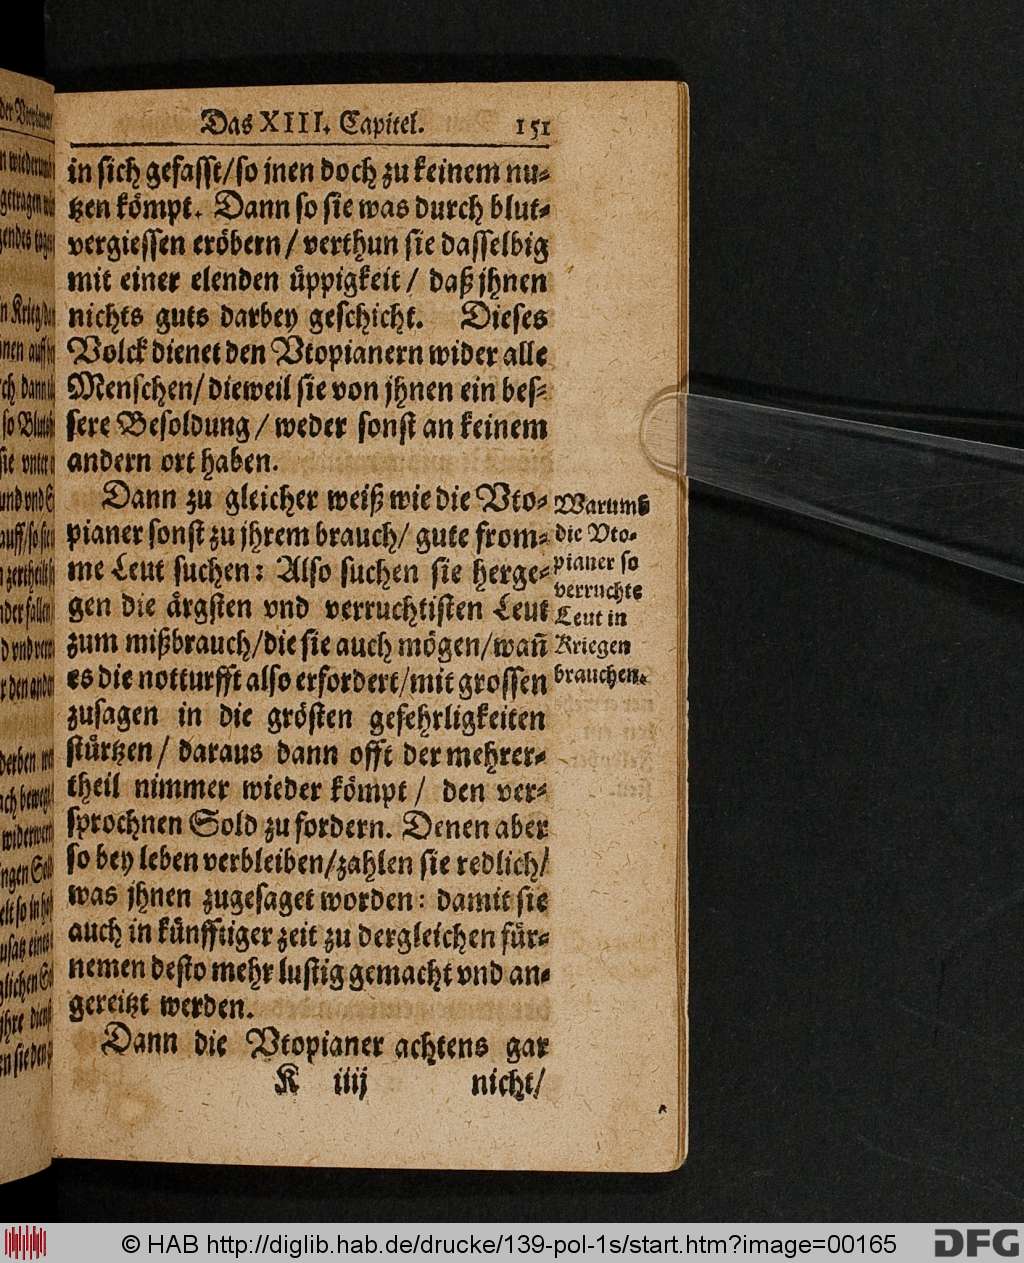 Das XIII. Capitel. 151
in sich gefasst/so jnen doch zu keinem nu-
tzen kömpt. Dann so sie was durch blut-
vergiessen eröbern/ verthun sie dasselbig
mit einer elenden üppigkeit/ daß jhnen
nichts guts darbey geschicht. Dieses
Volck dienet den Vtopianern wider alle
Menschen/ dieweil sie von jhnen ein bes-
sere Besoldung/ weder sonst an keinem
andern ort haben.
Dann zu gleicher weiß wie die Vto-
pianer sonst zu jhrem brauch/ gute from-
me Leut suchen: Also suchen sie herge-
gen die ärgsten vnd verruchtisten Leut
zum mißbrauch/die sie auch mögen/wañ
es die notturfft also erfordert/mit grossen
zusagen in die grösten gefehrligkeiten
stürtzen/ daraus dann offt der mehrer-
theil nimmer wieder kömpt/ den ver-
sprochnen Sold zu fordern. Denen aber
so bey leben verbleiben/zahlen sie redlich/
was jhnen zugesaget worden: damit sie
auch in künfftiger zeit zu dergleichen für-
nemen desto mehr lustig gemacht vnd an-
gereitzt werden.
Dann die Vtopianer achtens gar
K iiij nicht/
Warumb
die Vto-
pianer so
verruchte
Leut in
Kriegen
brauchen.
© HAB http://diglib.hab.de/drucke/139-pol-1s/start.htm?image=00165
DFG